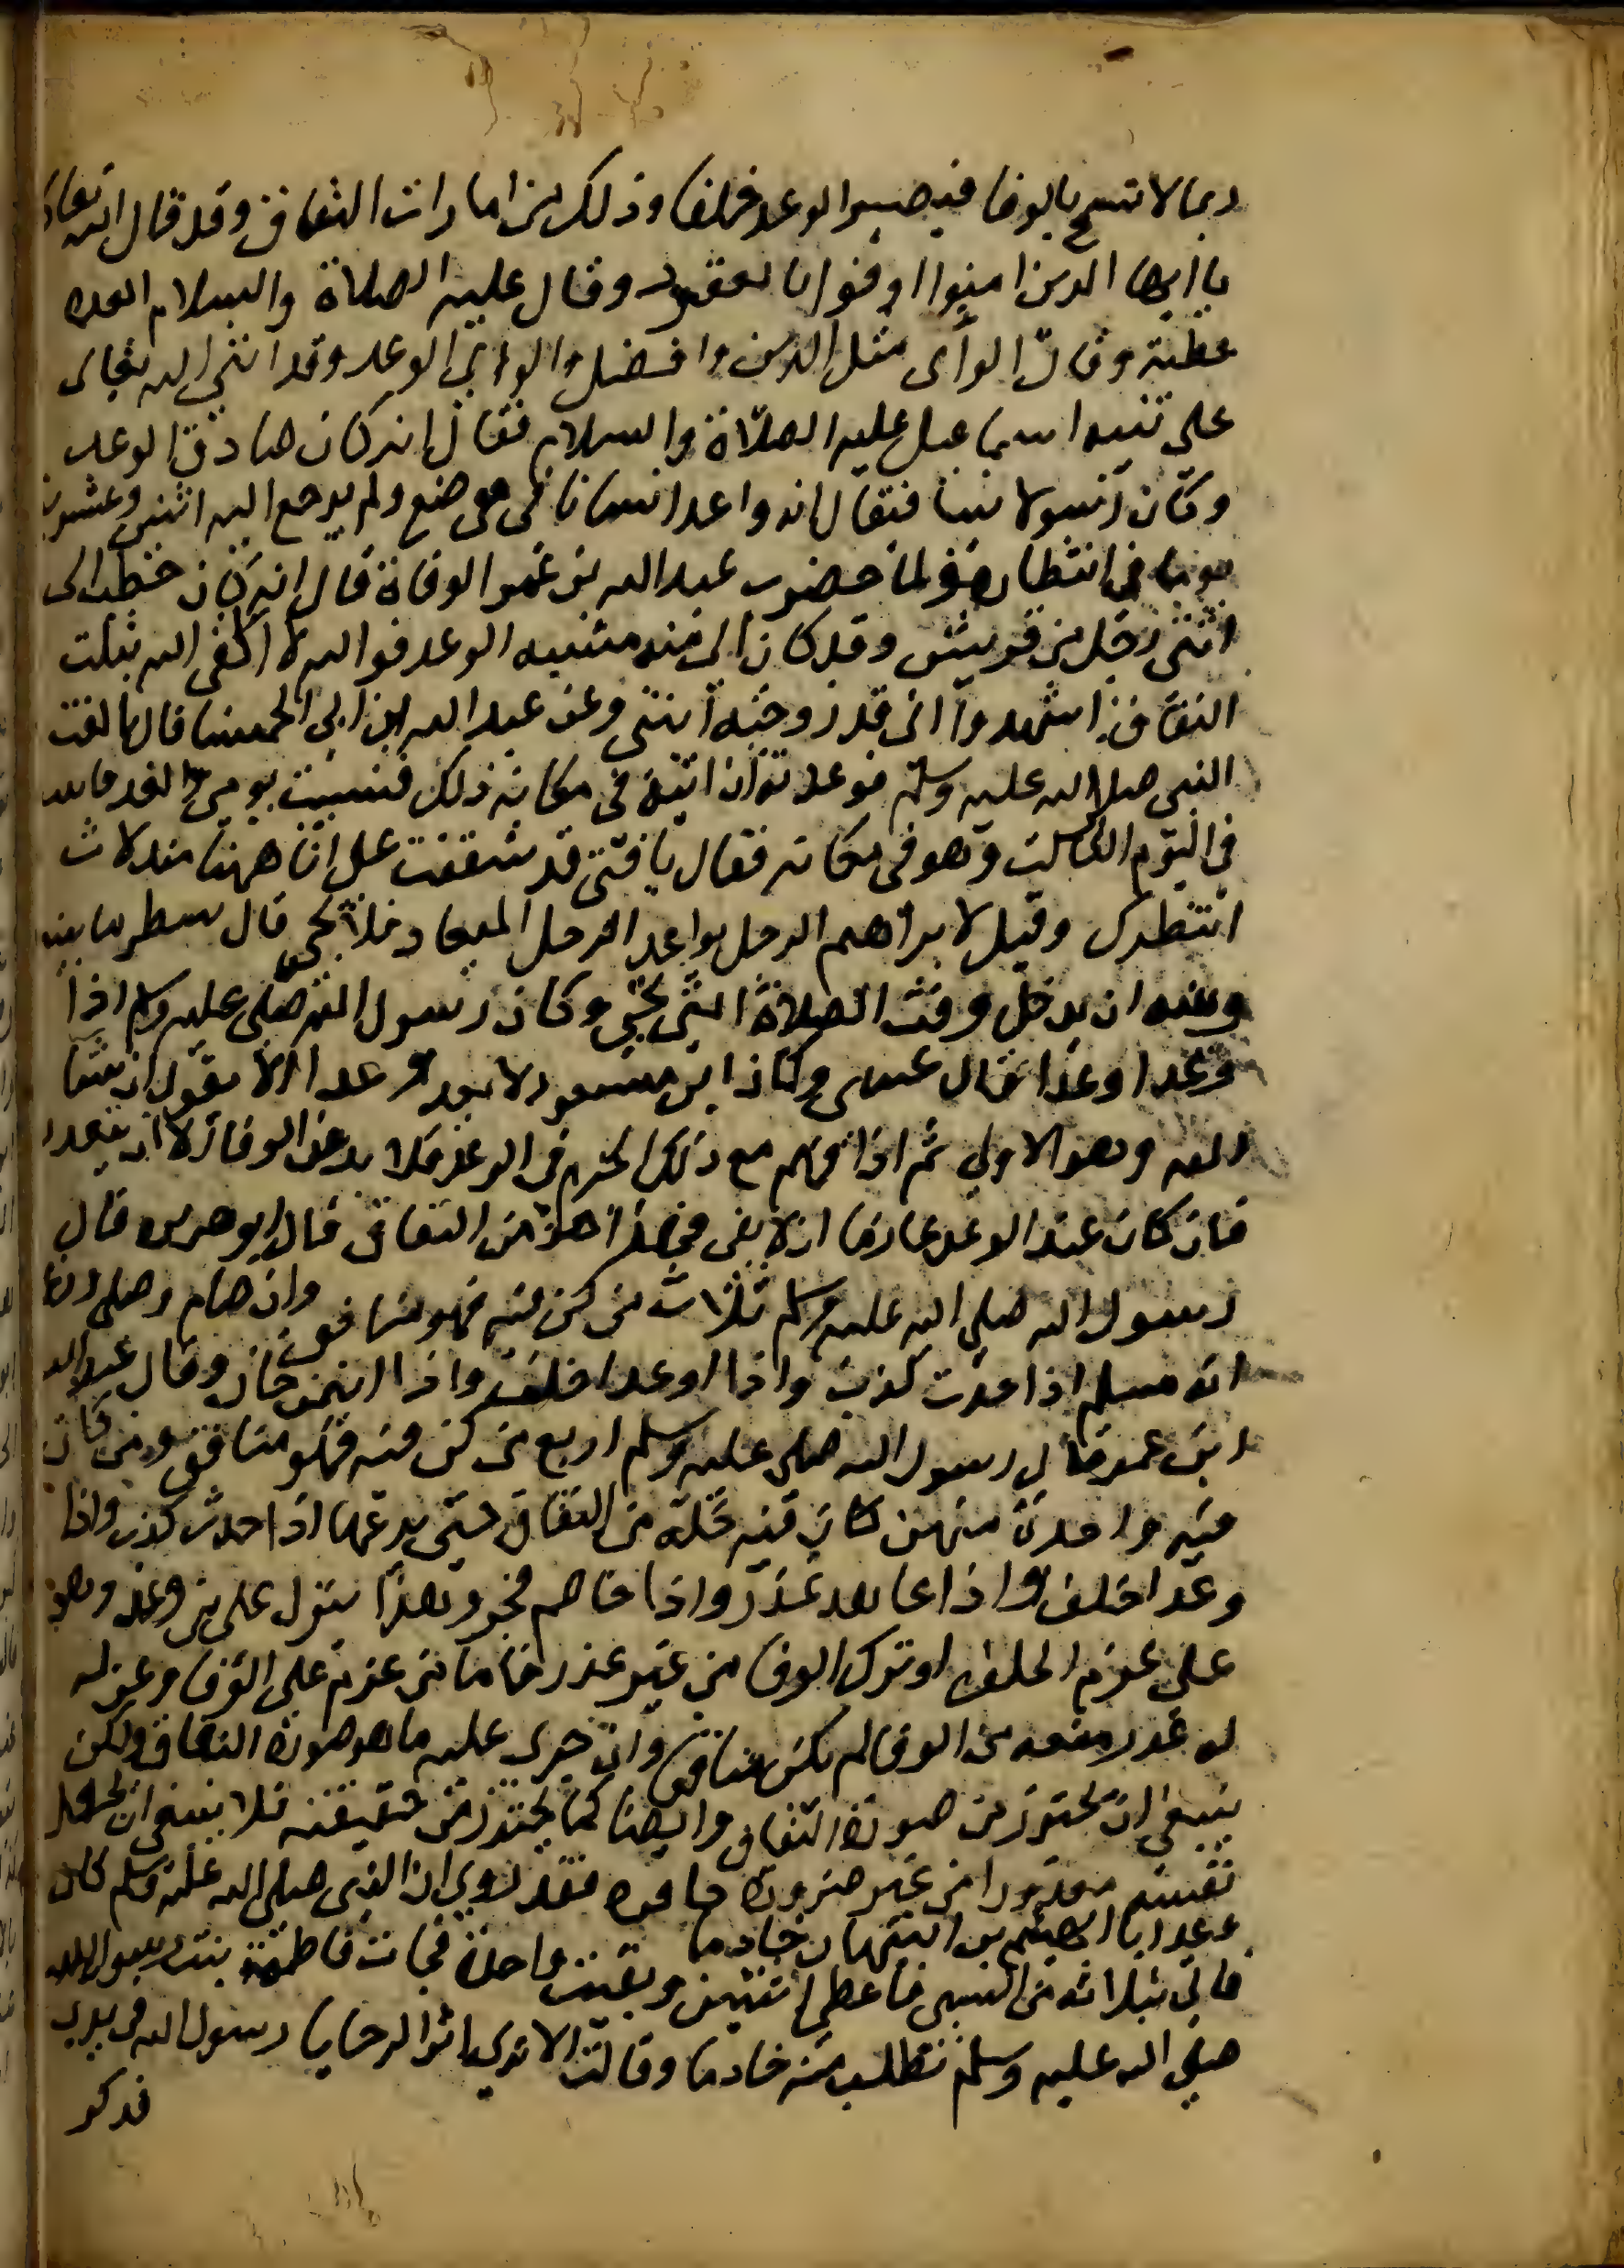 ربما لا تسمح بالوفا فيصير الوعد خلفا وذلك من امارات النفاق وقد قال الله تعالى
يا ايها الدين امنوا اوفوا بالعقود وقال عليه الصلاة والسلام العده
عطية وقال الوأى مثل الدين وافضل والوأي الوعد وقد اثنى الله تعالى
على نبيه اسماعيل عليه الصلاة والسلام فقال انه كان صادق الوعد
وكان رسولا نبيا فيقال انه واعد انسانا في موضع ولم يرجع اليه اثنين وعشرين
يوما في انتظاره ولما حضرت عبد الله بن عمر الوفاة قال انه كان خطب الى
ابنتي رجل من قريش وقد كان الى منه شبيه الوعد فوالله لا القى الله بثلث
النفاق اشهدوا انى قد زوجته ابنتي وعن عبد الله ابن ابى الحمسا قال بايعت
النبى صلا الله عليه وسلم فوعدته ان اتيه في مكانه ذلك فنسيت يومي والغد فاتيته
في اليوم الثالث وهو في مكانه فقال يا فتى قد شققت على انا ههنا منذ ثلاث
انتظرك وقيل لابراهيم الرجل يواعد الرجل الميعاد فلا يجي قال ينتظر ما بينه
وبينه ان يدخل وقت الصلاة التى تجي وكان رسول الله صلى عليه وسلم اذا
وعد اوعدا قال عسى وكان ابن مسعود لا يعد وعدا الا يقول ان شا
الله وهو الاولى ثم اذا فهم مع ذلك الجزم في الوعد فلا بد من الوفا الا ان يتعذر
فان كان عند الوعد عازما ان لا يفى فهذا هو من النفاق قال ابو هريره قال
رسول الله صلى الله عليه وسلم ثلاث من كن فيه فهو منافق وان صام وصلى وزعم
انه مسلم اذا حدث كذب واذا اوعد اخلف واذا ائتمن خان وقال عبد الله
ابن عمر قال رسول الله صلى عليه وسلم اربع من كن فيه فهو منافق ومن كان
فيه واحدة منهن كان فيه خلة من النفاق حتى يدعها اذا حدث كذب واذا
وعد اخلف واذا عاهد غدر واذا خاصم فجر وهذا ينزل على من وعد وهو
على عزم الخلف او ترك الوفا من غير عذر فاما من عزم على الوفا وعن له
له عذر منعه من الوفا لم يكن منافقا وان جرى عليه ما هو صورة النفاق ولكن
ينبغي ان يحترز من صورة النفاق وايضا كما يحترز من حقيقته فلا ينبغي ان يجعل
نفسه معذورا من غير ضرورة حاجزه فقد روي ان النبى صلى الله عليه وسلم كان
وعد ابا الهيثم بن التيهان خادما
فاتي بثلاثة من السبى فاعطى اثنين وبقيت واحدة فجات فاطمة بنت رسول الله
صلى الله عليه وسلم تطلب منه خادما وقالت الا ترى اثر الرحا يا رسول الله في يدي
فذكر